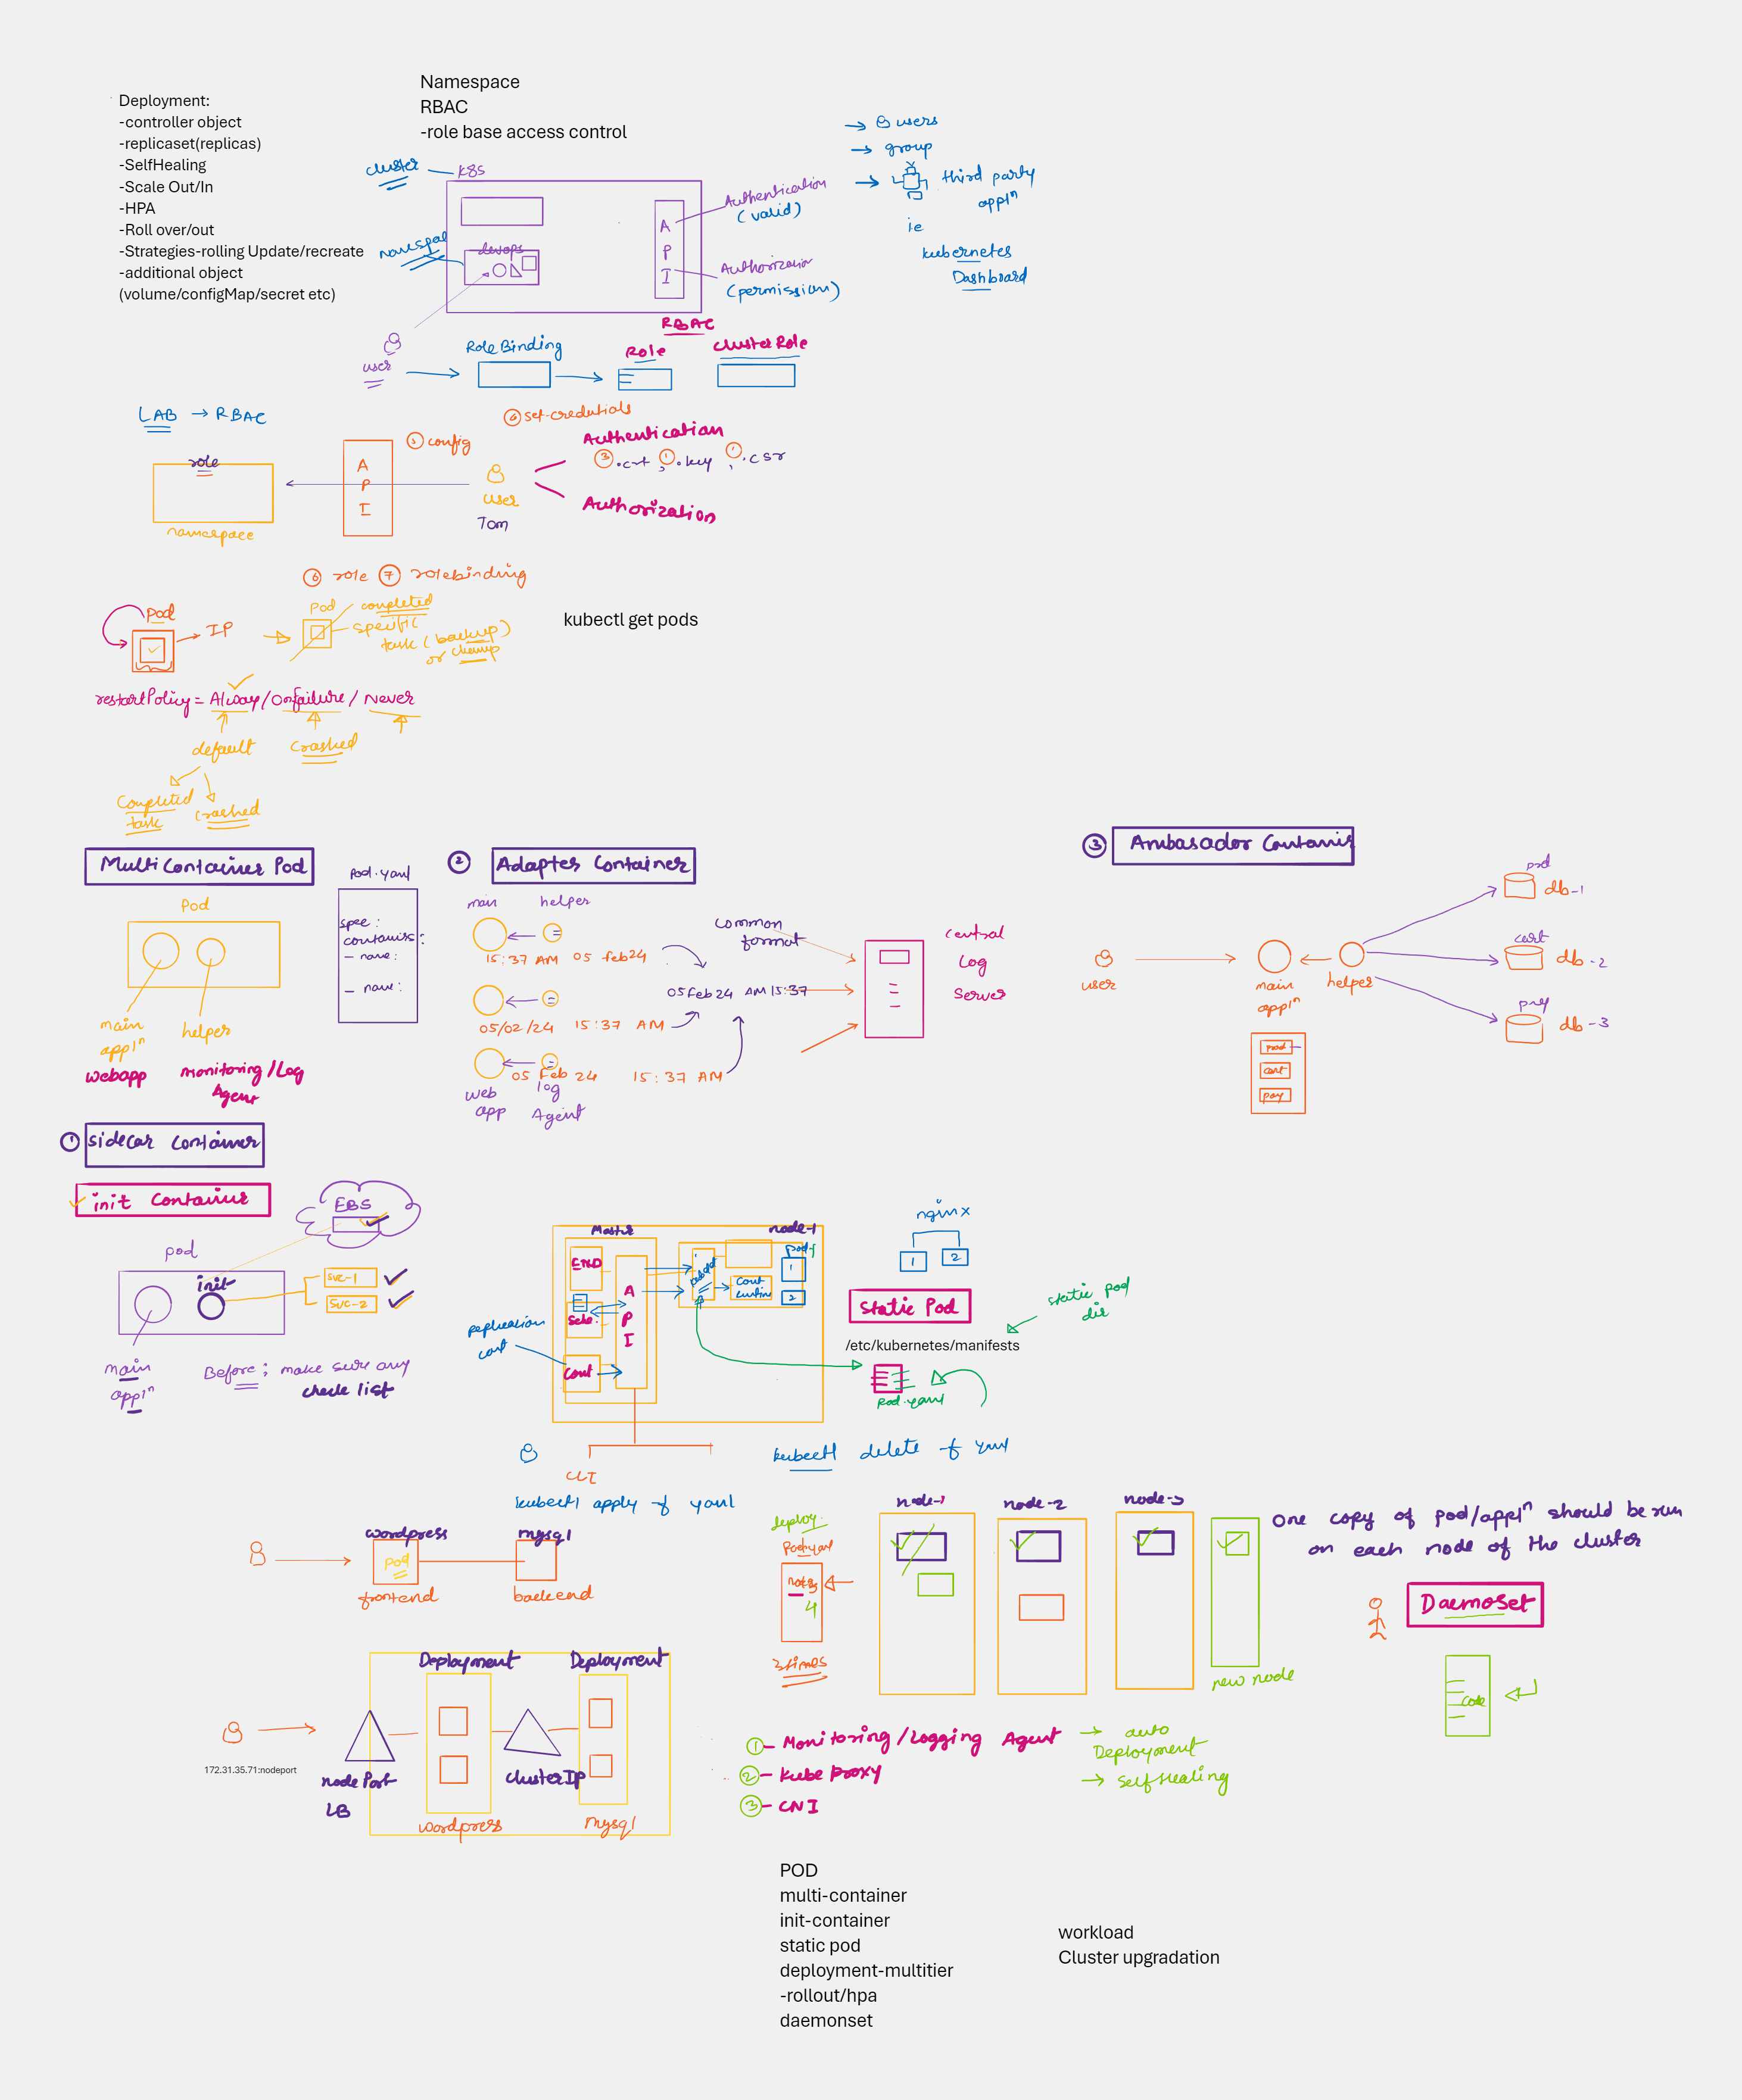 Deployment:
-controller object
-replicaset(replicas)
-SelfHealing
-Scale Out/In
-HPA
-Roll over/out
-Strategies-rolling Update/recreate
-additional object
(volume/configMap/secret etc)
Namespace
RBAC
-role base access control
cluster
k8s
devops
API
Authentication
(valid)
Authorization
(permission)
users
group
third party
appln
ie
kubernetes
Dashboard
RBAC
user
RoleBinding
Role
ClusterRole
LAB → RBAC
role
namespace
API
5 config
4 set-credentials
user
Tom
Authentication
3 .crt , 1 .key , 1 .csr
Authorization
6 role 7 rolebinding
Pod
IP
Pod
completed
specific
task (backup)
or cleanup
kubectl get pods
restartPolicy = Always/Onfailure / Never
default
Crashed
Completed
task
Crashed
MultiContainer Pod
Pod
main
appln
helper
webapp
monitoring/Log
Agent
Pod.yaml
spec:
- name:
- name:
2 Adapter Container
main
helper
15:37 AM 05 feb24
05/02/24 15:37 AM
05 Feb 24 15:37 AM
web
app
log
Agent
common
format
05Feb24 AM 15:37
central
Log
Server
3 Ambasador
user
main
appln
helper
prod
cart
pay
db-1
cart
db-2
db-3
1 sidecar Container
init
EBS
pod
init
svc-1
svc-2
main
appln
Before: make sure any
check list
Master
API
Cont
node-1
1
2
nginx
1
2
static Pod
/etc/kubernetes/manifests
static pod
dir
Pod.yaml
CLI
kubectl apply -f yaml
kubectl delete -f yaml
wordpress
Pod
frontend
mysql
backend
deploy
4
3times
node-1
node-2
node-3
new node
One copy of pod/appln should be run
on each node of the cluster
DaemoSet
code
Deployment
Deployment
172.31.35.71:nodeport
nodePort
LB
wordpress
clusterIP
mysql
1 - Monitoring/Logging Agent
2 - Kube Proxy
3 - CNI
→ auto
Deployment
→ selfHealing
POD
multi-container
init-container
static pod
deployment-multitier
-rollout/hpa
daemonset
workload
Cluster upgradation